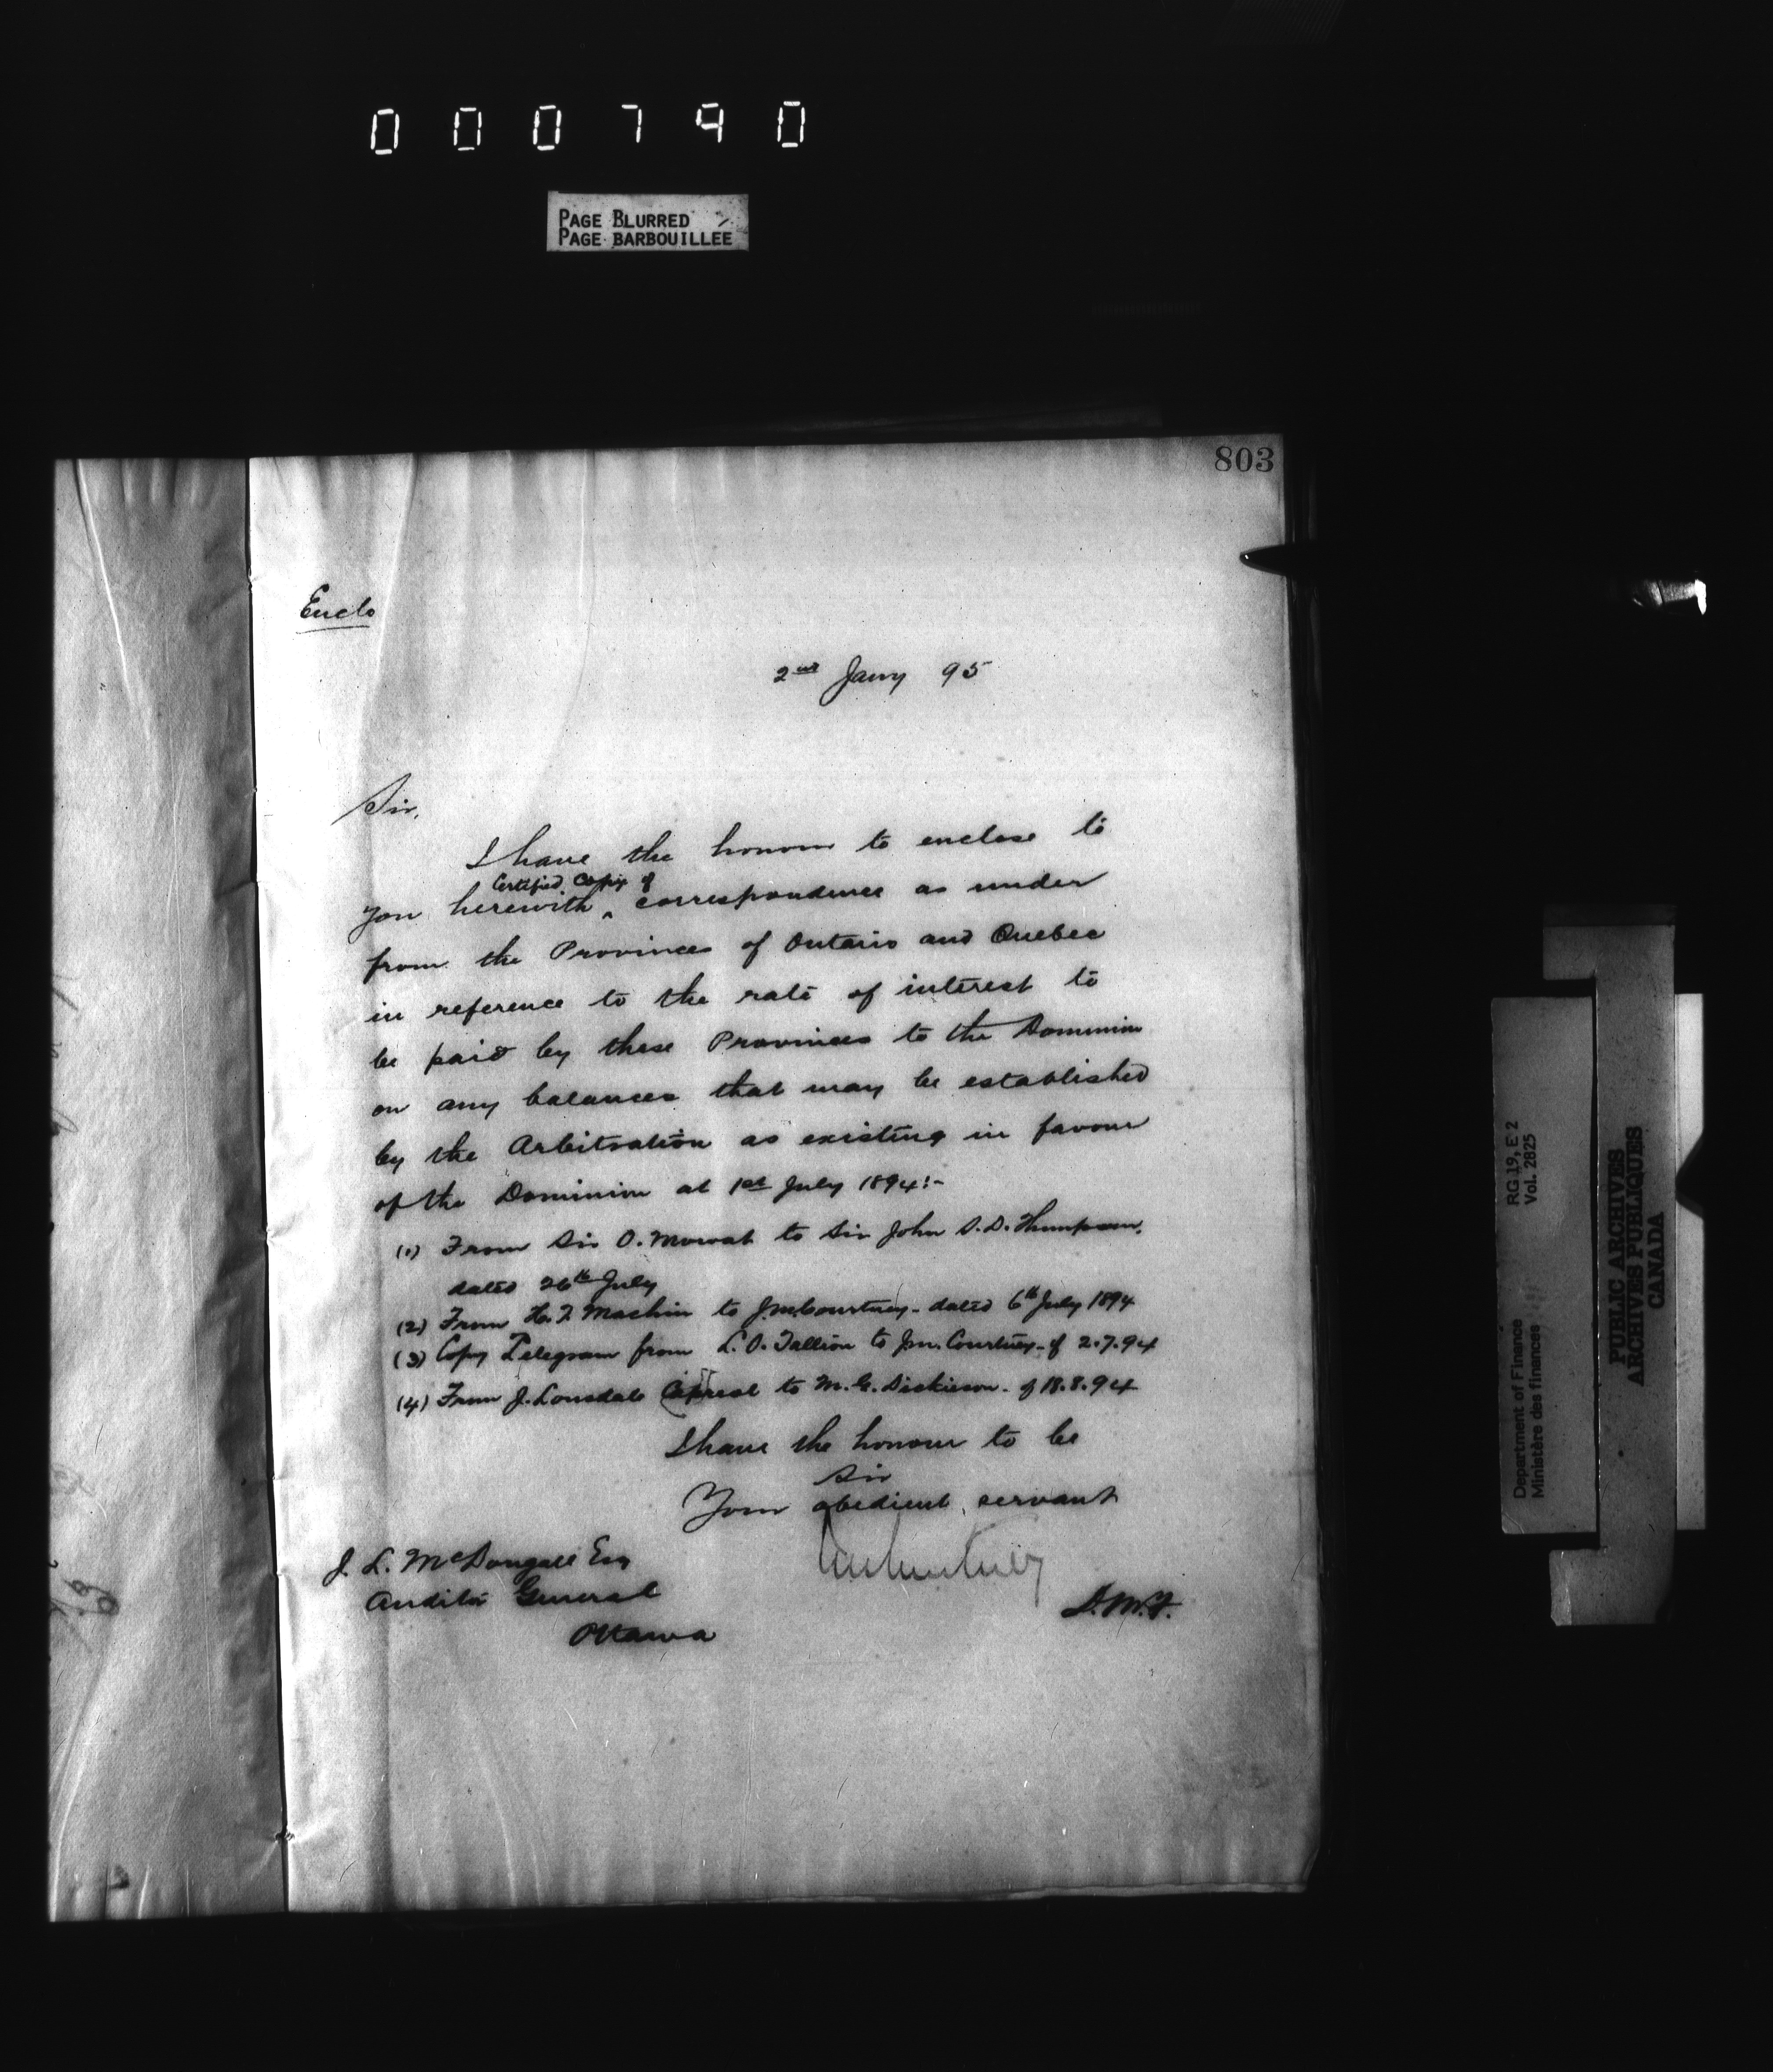 000790
PAGE BLURRED
PAGE BARBOUILLÉE
803
Enclo
2nd Jany 95
Sir,
I have the honour to enclose to
Certified Copy of
you herewith ^ correspondence as under
from the Provinces of Ontario and Quebec
in reference to the rate of interest to
be paid by these Provinces to the Dominion
on any balances that may be established
by the Arbitration as existing in favour
of the Dominion at 1st July 1894:-
(1) From Sir O. Mowat to Sir John S. D. Thompson.
dated 26th July
(2) From H. T. Machin to J. M. Courtney - dated 6th July 1894
(3) Copy Telegram from L. O. Taillon to J. M. Courtney - of 2.7.94
(4) From J. Lonsdale to M. G. Dickieson - of 18.8.94
I have the honour to be
Sir
Your obedient servant
J. M. Courtney
D.M.F.
J. L. McDougall Esq
Auditor General
Ottawa
Department of Finance
Ministère des finances
RG 19, E 2
Vol. 2825
PUBLIC ARCHIVES
ARCHIVES PUBLIQUES
CANADA